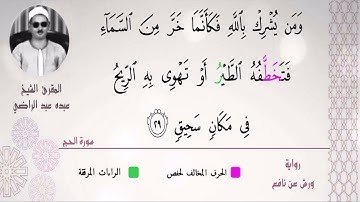 وَمَن يُشْرِكْ بِاللَّهِ فَكَأَنَّمَا خَرَّ مِنَ السَّمَآءِ
فَتَخَطَّفُهُ الطَّيْرُ أَوْ تَهْوِى بِهِ الرِّيحُ
فِى مَكَانٍ سَحِيقٍ ٢٩
المقرئ الشيخ
عبده عبد الراضي
سورة الحج
رواية
ورش عن نافع
الحرف المخالف لحفص
الراءات المرققة